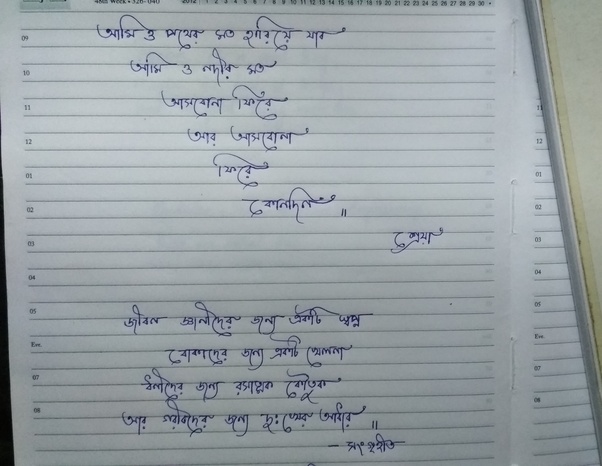 48th Week • 326-040 2012 1 2 3 4 5 6 7 8 9 10 11 12 13 14 15 16 17 18 19 20 21 22 23 24 25 26 27 28 29 30 •
09 আমি ও পথের মত হারিয়ে যাব
10 আমি ও নদীর মত
11 আসবোনা ফিরে
12 আর আসবোনা
01 ফিরে
02 কোনদিন ॥
03 শ্রেয়া
04
05 জীবন জ্ঞানীদের জন্য একটি স্বপ্ন
Eve. বোকাদের জন্য একটি খেলনা
07 ধনীদের জন্য রসাত্মক কৌতুক
08 আর গরীবদের জন্য দুঃখের আধাঁর ॥
– সংগৃহীত
11
12
01
02
03
04
05
Eve.
07
08